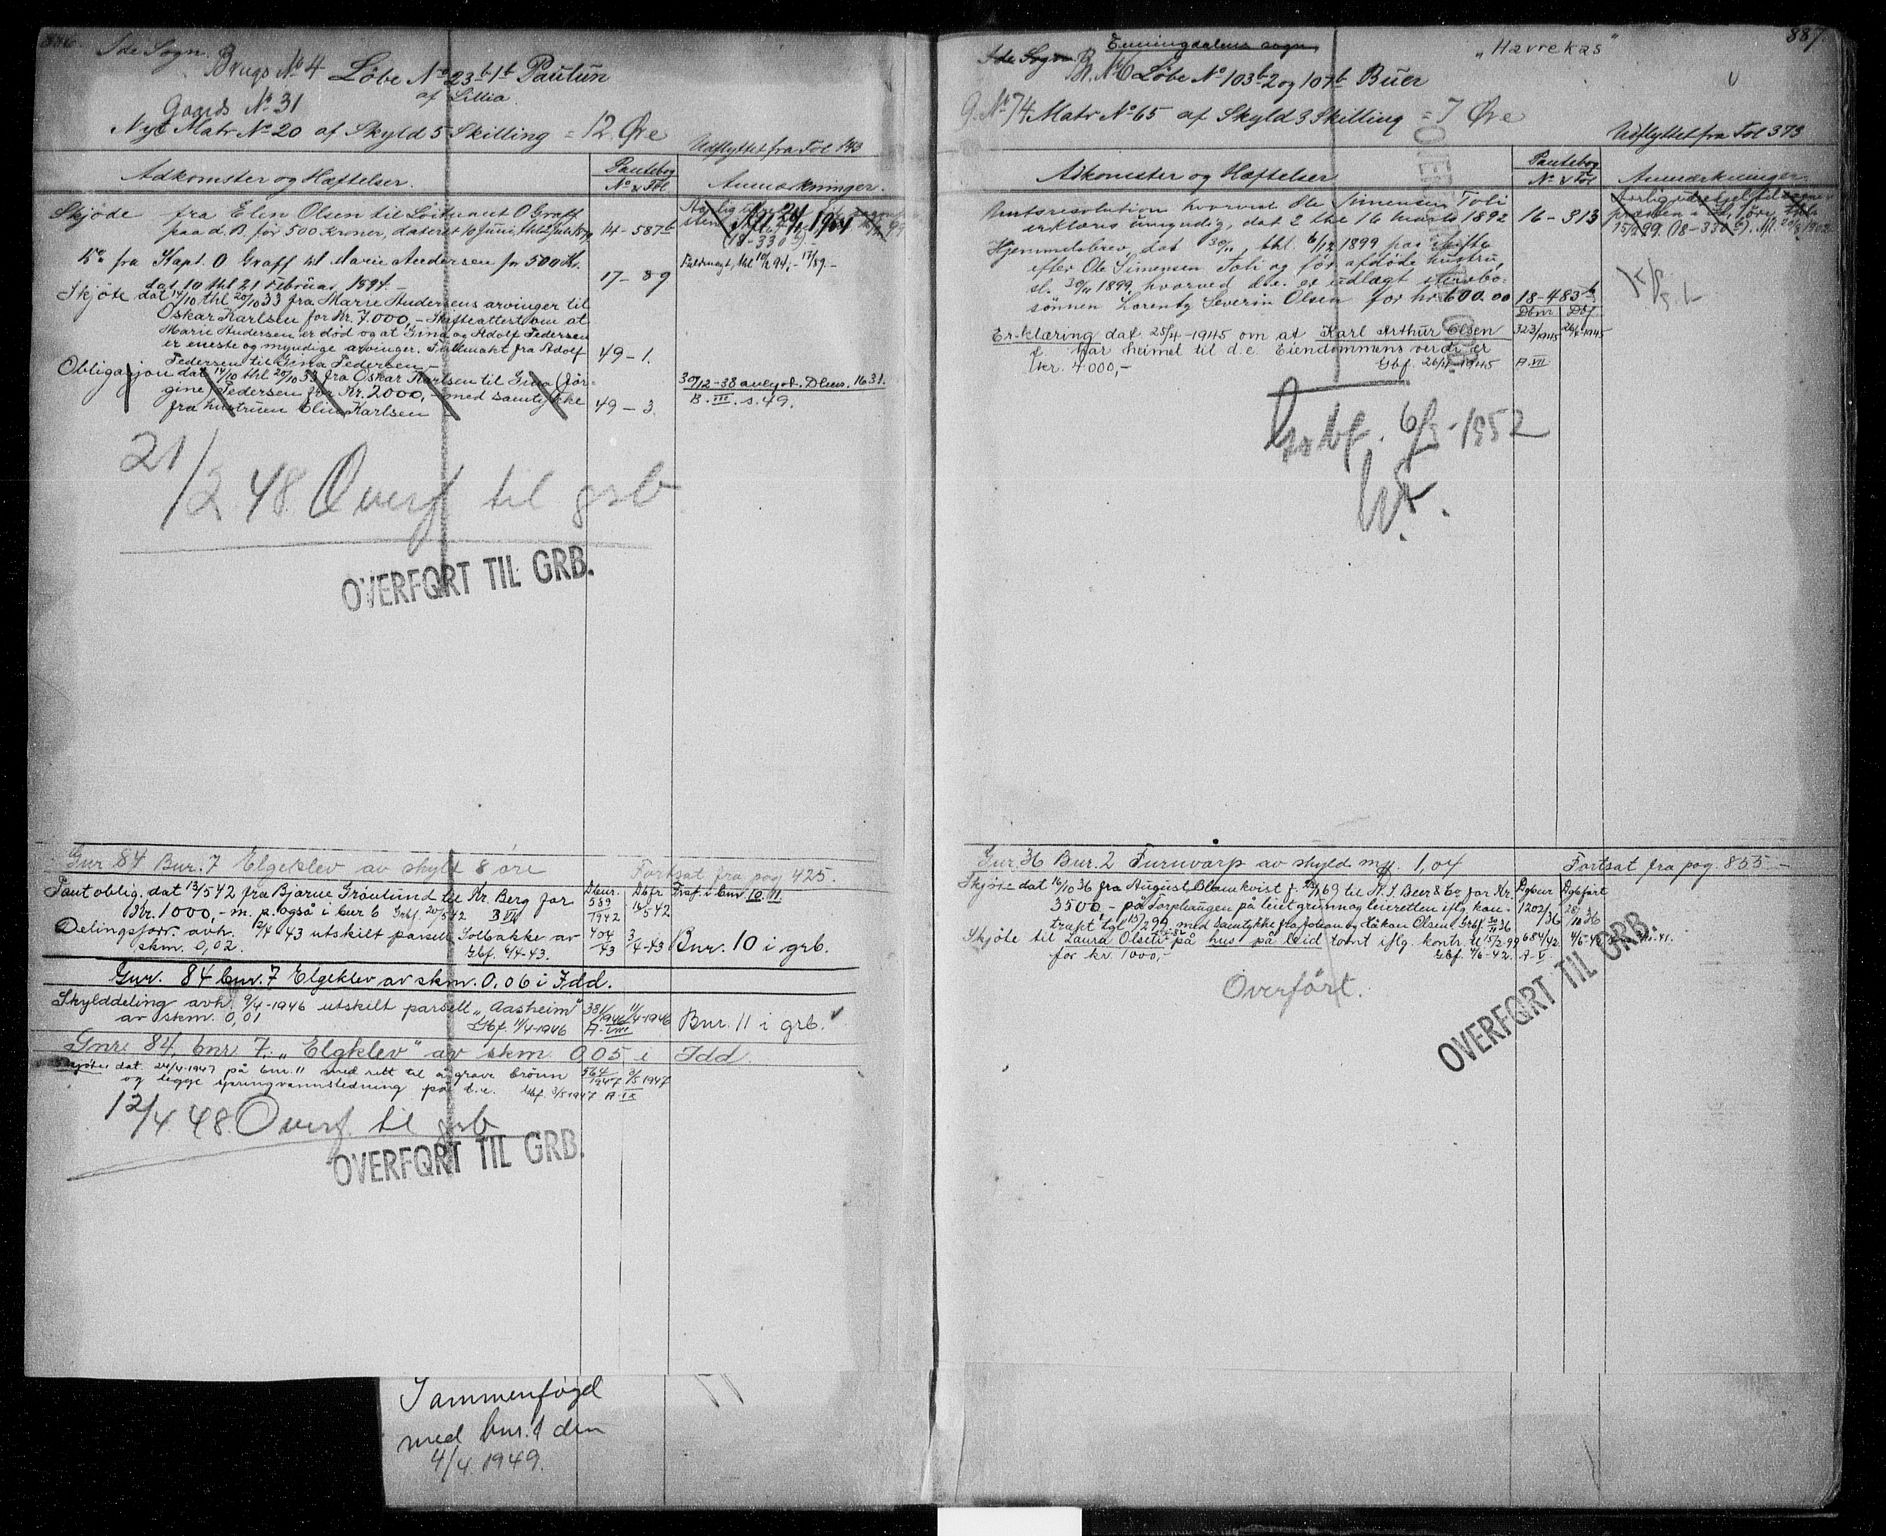 886.
Ide Sogn.
Brugs No 4 Løbe No 23 b 1 b Pautun
af Lillia.
Gaards No 31
Nyt Matr No 20 af Skyld 5 Skilling = 12 Øre
Udflyttet fra Fol 143
Adkomster og Hæftelser.
Pantebog
No & Fol
Anmærkninger.
Skjøde fra Elin Olsen til Løitnant O Graff
paa d. B. for 500 Kroner, dateret 10 Juni,
14-587 b
(18-330
Do fra Kapt. O Graff til Marie Andersen for 500 Kr.
dat 10 thl 21 Februar 1894.-
17-89
Skjøte dat 14/10 thl 20/10 33 fra Marie Andersens arvinger til
Oskar Karlsen for Kr. 7000,- Skifteattest om at
Marie Andersen er død og at Gina og Adolf Pedersen
er eneste og myndige arvinger. Fullmakt fra Adolf
Pedersen til Gina Pedersen.-
49-1.
Obligasjon dat 14/10 thl 20/10 33 fra Oskar Karlsen til Gina (Jør-
gine) Pedersen for Kr. 2000,- med samtykke
fra hustruen Elin Karlsen
49-3.
30/12-38 avlyst. Dbnr. 1631.
B. III. s. 49.
21/2 48. Overf til grb
OVERFØRT TIL GRB.
Gnr 84 Bnr. 7 Elgeklev av skyld 8 øre
Fortsat fra pag 425.
Pantoblig. dat 13/5 42 fra Bjarne Grønlund til Kr. Berg for
Kr. 1000,- m. p. også i bnr 6
B VII
Dbnr.
589
1942
Dbfr
Delingsforr. avh. 12/4 43 utskilt parsell Solbakke av
skm. 0,02.
Gbf. 6/4-43.
404
43
3/4-43
Bnr. 10 i grb.
Gnr. 84 bnr. 7 Elgeklev av skm. 0,06 i Idd.
Skylddeling avh. 9/4-1946 utskilt parsell "Aasheim"
av skm. 0,01
Gbf. 11/4-1946
11/4-1946
Bnr. 11 i grb.
Gnr. 84, bnr. 7. "Elgklev" av skm. 0,05 i Idd.
Skjøte dat. 24/4-1947 på bnr. 11 med rett til å grave brønn
og legge springvannsledning på d.e. Gbf. 3/5 1947 A IX
564
1947
3/5 1947
12/4 48. Overf. til grb
OVERFØRT TIL GRB.
Sammenføyd
med bnr. 1 den
4/4 1949.
887
Enningdalens sogn
"Havrekas"
Ide Sogn. B. No 6 Løbe No 103 b 2 og 107 b Buer
G. No 74 Matr No 65 af Skyld 3 Skilling = 7 Øre
Udflyttet fra Fol 373
Adkomster og Hæftelser
Pantebog
No & Fol
Anmærkninger.
Amtsresolution hvorved Ole Simensen Toli
erklæres umyndig, dat 2 thl 16 Marts 1892
16-313
15/2 99. (18-330
Hjemmelsbrev, dat 30/11, thl 6/12 1899 paa Skifte
efter Ole Simensen Toli og før afdøde hustru,
sl. 30/11 1899, hvorved d.e. er udlagt stervbo-
sønnen Lorentz Severin Olsen for kr 600.00
18-483 b
Dbnr
Dbf
Erklæring dat 25/4-1945 om at Karl Arthur Olsen
har heimel til d.e. Eiendommens verdi er
kr. 4000,-
Gbf. 26/4 1945
323/1945
26/4-1945
A. VII
Grbf. 6/3-1952
OVERFØRT TIL GRB.
Gnr 36 Bnr. 2 Furuvarp av skyld mk. 1,04
Fortsat fra pag. 855.-
Skjøte dat 16/10 36 fra August Blomkvist f. 23/1 69 til N. S. Beer & Co for Kr
3500,- på Torphaugen på leiet grunn og leieretten iflg kon-
trakt tgl 15/2 99 med samtykke fra Johan og Håkan Olsen
Dgbnr
1202/36
Dgbført
28/10 36
Skjøte til Laura Olsen på hus på leid tomt iflg. kontr. tl 15/2 99
for kr. 1000,-
Gbf. 4/6-42.
684/42
A-V
Overført.
OVERFØRT TIL GRB.